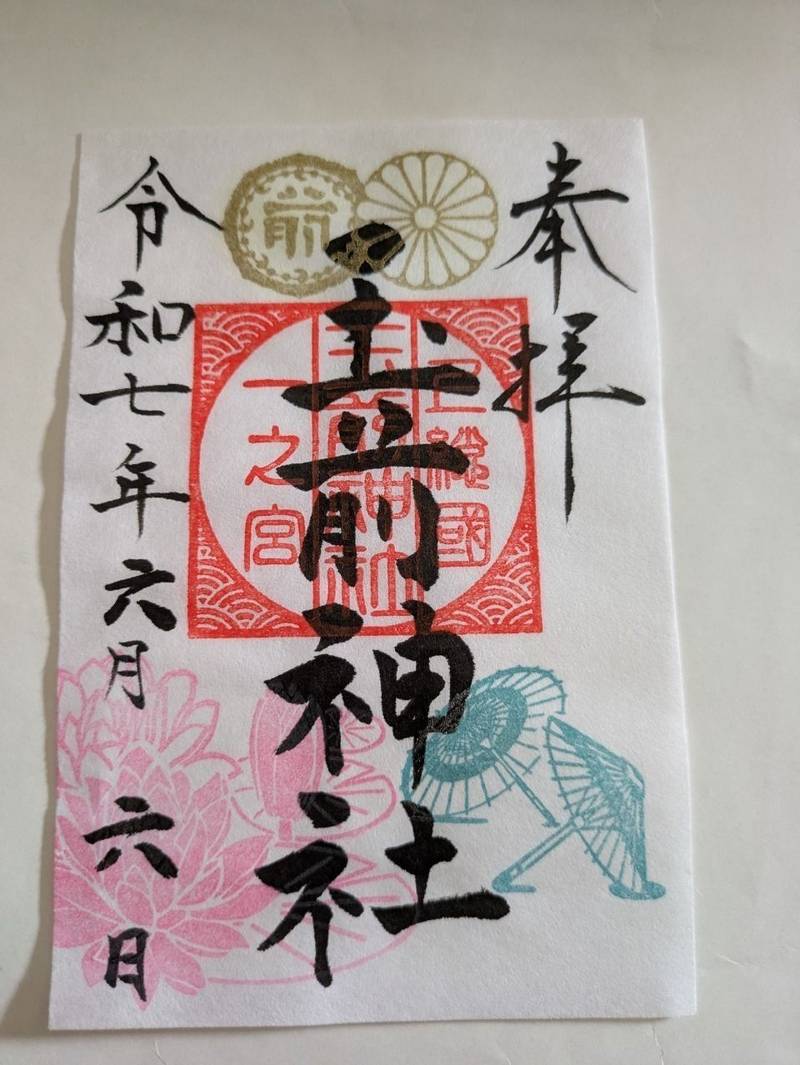 奉拝
上総國
玉前神社
一之宮
前
玉前神社
令和七年六月六日